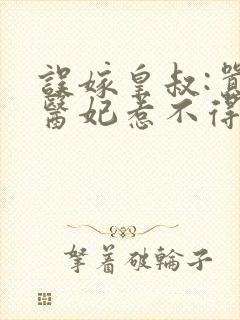 誤嫁皇叔:囂
醫妃惹不得
拏着破輪子